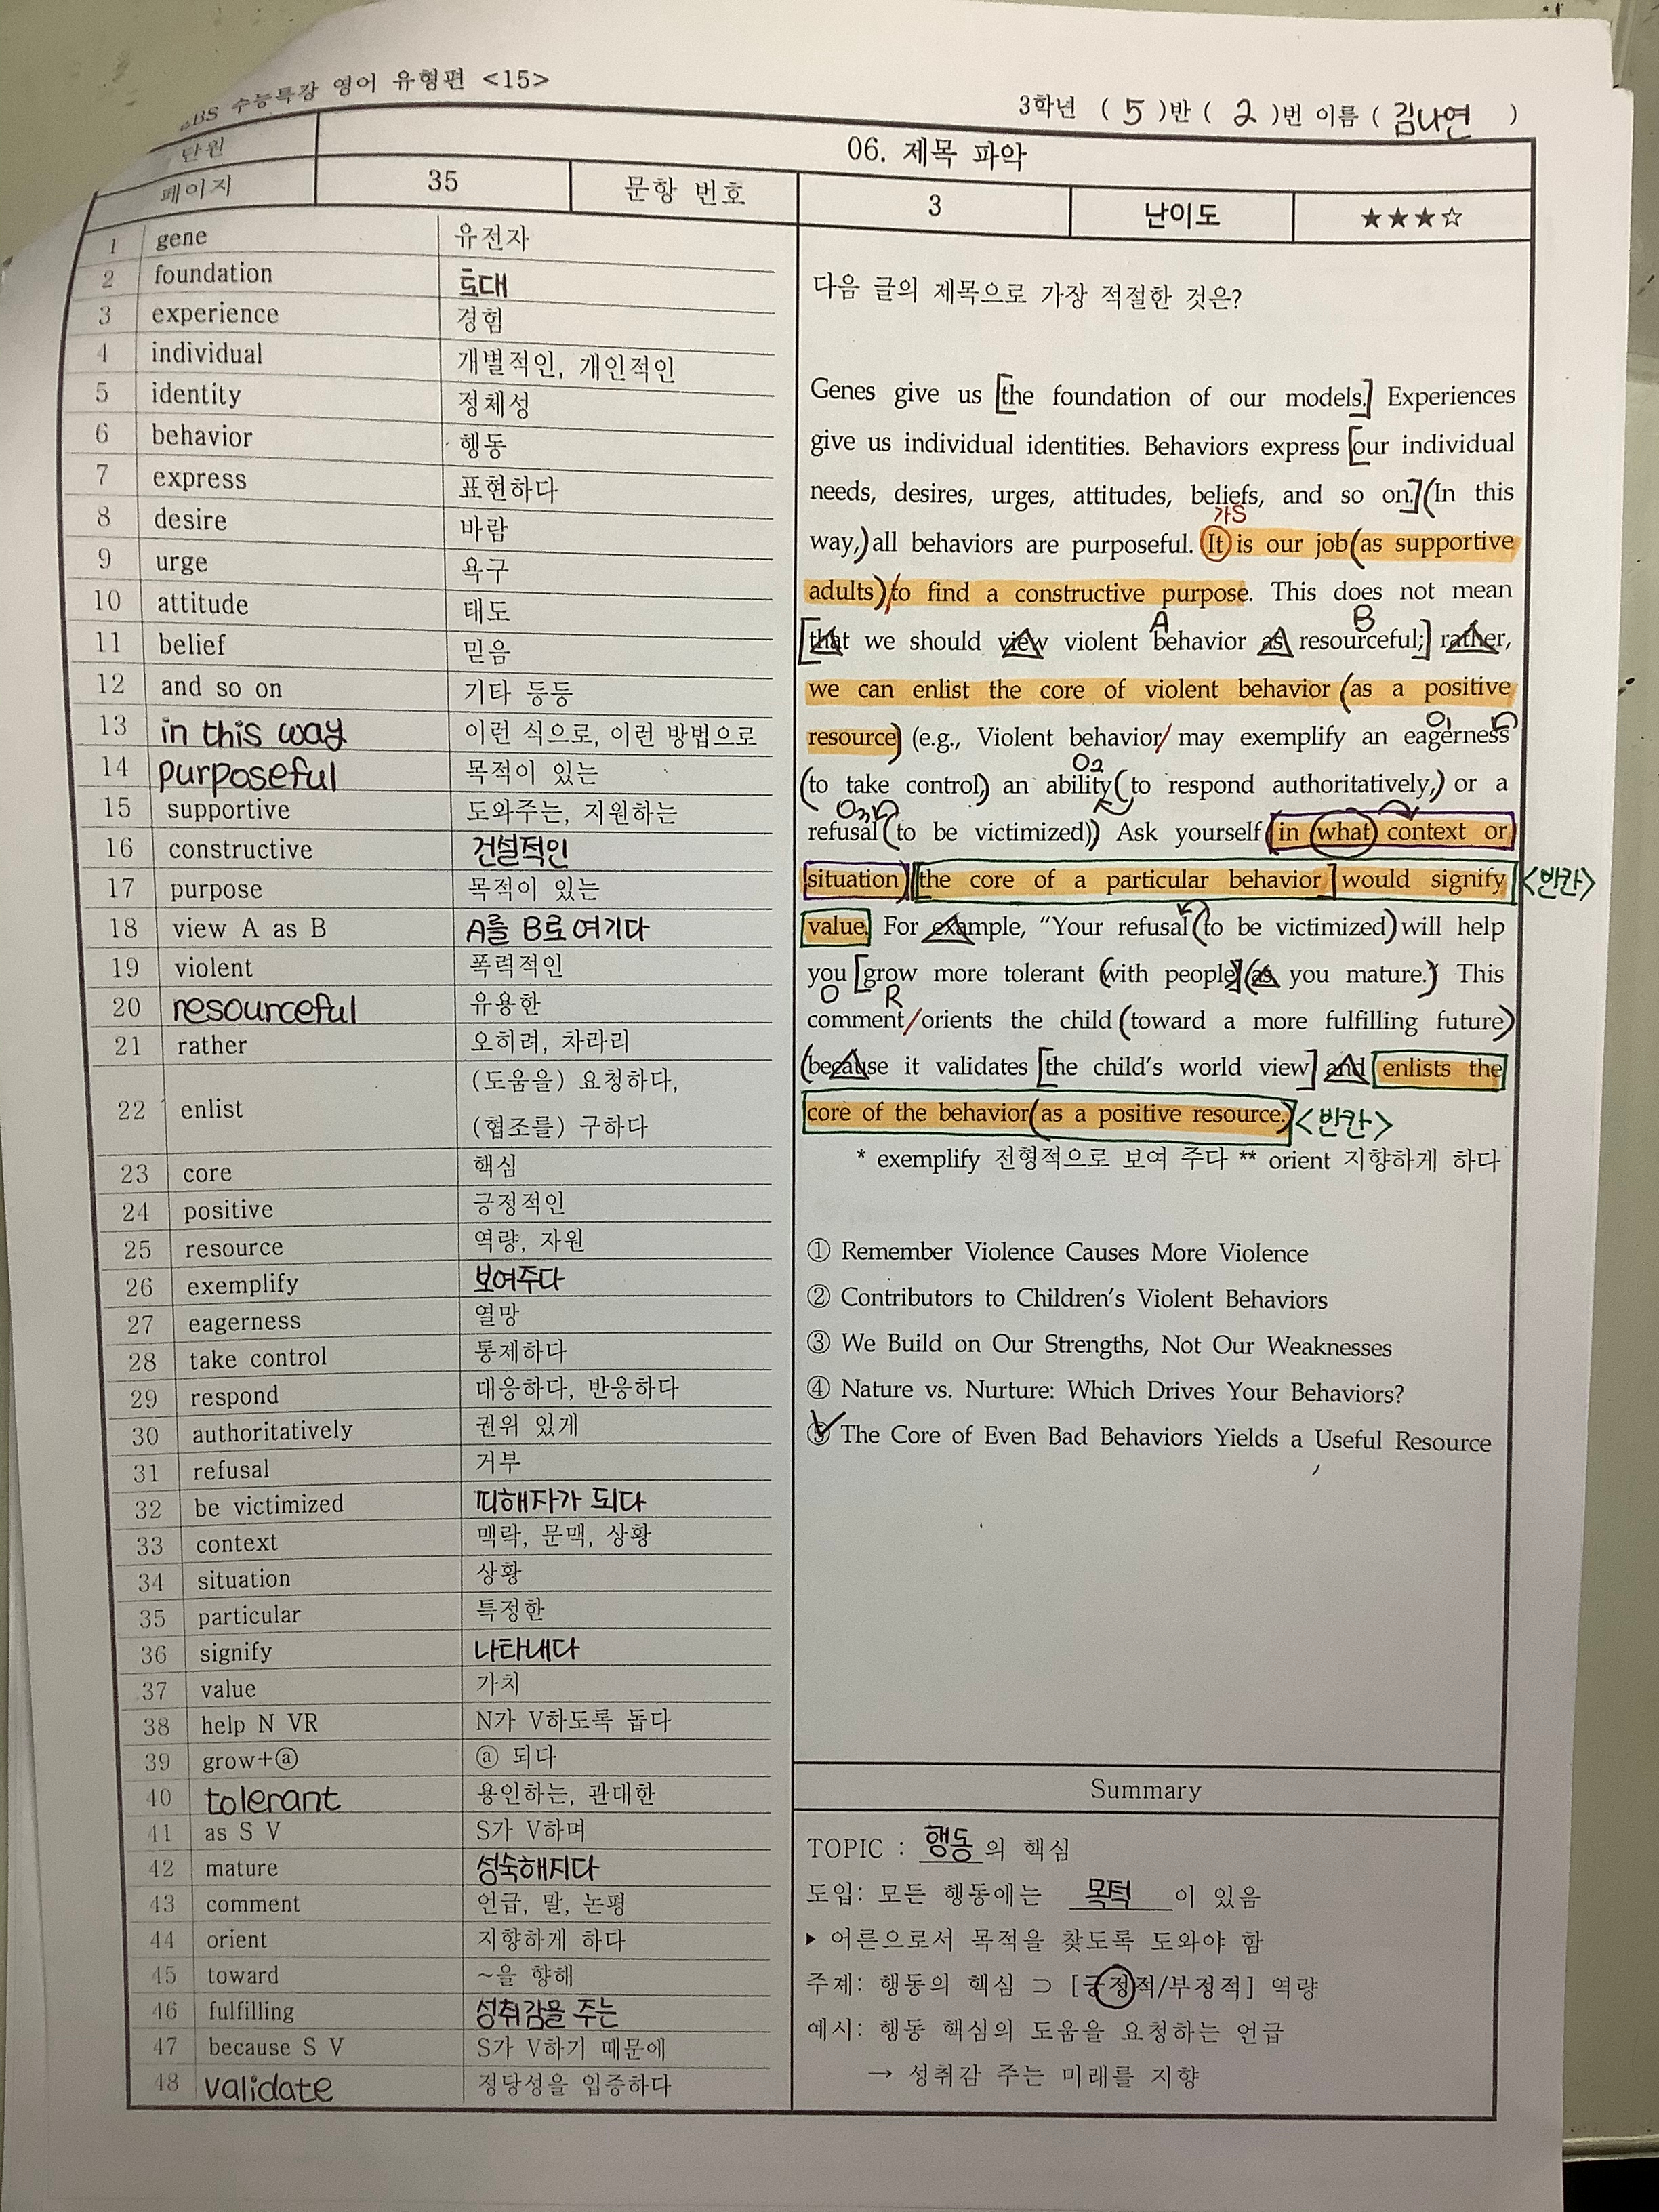 EBS 수능특강 영어 유형편 <15>
3학년 ( 5 )반 ( 2 )번 이름 ( 김나연 )
단원 06. 제목 파악
페이지 35 문항 번호 3 난이도 ★★★☆
1 gene 유전자
2 foundation 토대
3 experience 경험
4 individual 개별적인, 개인적인
5 identity 정체성
6 behavior 행동
7 express 표현하다
8 desire 바람
9 urge 욕구
10 attitude 태도
11 belief 믿음
12 and so on 기타 등등
13 in this way 이런 식으로, 이런 방법으로
14 purposeful 목적이 있는
15 supportive 도와주는, 지원하는
16 constructive 건설적인
17 purpose 목적이 있는
18 view A as B A를 B로 여기다
19 violent 폭력적인
20 resourceful 유용한
21 rather 오히려, 차라리
22 enlist (도움을) 요청하다,
(협조를) 구하다
23 core 핵심
24 positive 긍정적인
25 resource 역량, 자원
26 exemplify 보여주다
27 eagerness 열망
28 take control 통제하다
29 respond 대응하다, 반응하다
30 authoritatively 권위 있게
31 refusal 거부
32 be victimized 피해자가 되다
33 context 맥락, 문맥, 상황
34 situation 상황
35 particular 특정한
36 signify 나타내다
37 value 가치
38 help N VR N가 V하도록 돕다
39 grow+ⓐ ⓐ 되다
40 tolerant 용인하는, 관대한
41 as S V S가 V하며
42 mature 성숙해지다
43 comment 언급, 말, 논평
44 orient 지향하게 하다
45 toward ~을 향해
46 fulfilling 성취감을 주는
47 because S V S가 V하기 때문에
48 validate 정당성을 입증하다
다음 글의 제목으로 가장 적절한 것은?
Genes give us [the foundation of our models.] Experiences
give us individual identities. Behaviors express [our individual
needs, desires, urges, attitudes, beliefs, and so on.] (In this
가S
way,) all behaviors are purposeful. It is our job (as supportive
adults) / to find a constructive purpose. This does not mean
A B
[that we should view violent behavior as resourceful;] rather,
we can enlist the core of violent behavior (as a positive
O1
resource) (e.g., Violent behavior / may exemplify an eagerness
O2
(to take control) an ability (to respond authoritatively,) or a
O3
refusal (to be victimized)) Ask yourself (in what context or
situation) [the core of a particular behavior] would signify <반칸>
value. For example, “Your refusal (to be victimized) will help
you [grow more tolerant (with people)] (as you mature.)” This
O R
comment / orients the child (toward a more fulfilling future)
(because it validates [the child's world view] and enlists the
core of the behavior (as a positive resource.) <반칸>
* exemplify 전형적으로 보여 주다 ** orient 지향하게 하다
① Remember Violence Causes More Violence
② Contributors to Children's Violent Behaviors
③ We Build on Our Strengths, Not Our Weaknesses
④ Nature vs. Nurture: Which Drives Your Behaviors?
⑤ The Core of Even Bad Behaviors Yields a Useful Resource
Summary
TOPIC : 행동의 핵심
도입: 모든 행동에는 목적이 있음
▸ 어른으로서 목적을 찾도록 도와야 함
주제: 행동의 핵심 ⊃ [긍정적/부정적] 역량
예시: 행동 핵심의 도움을 요청하는 언급
→ 성취감 주는 미래를 지향